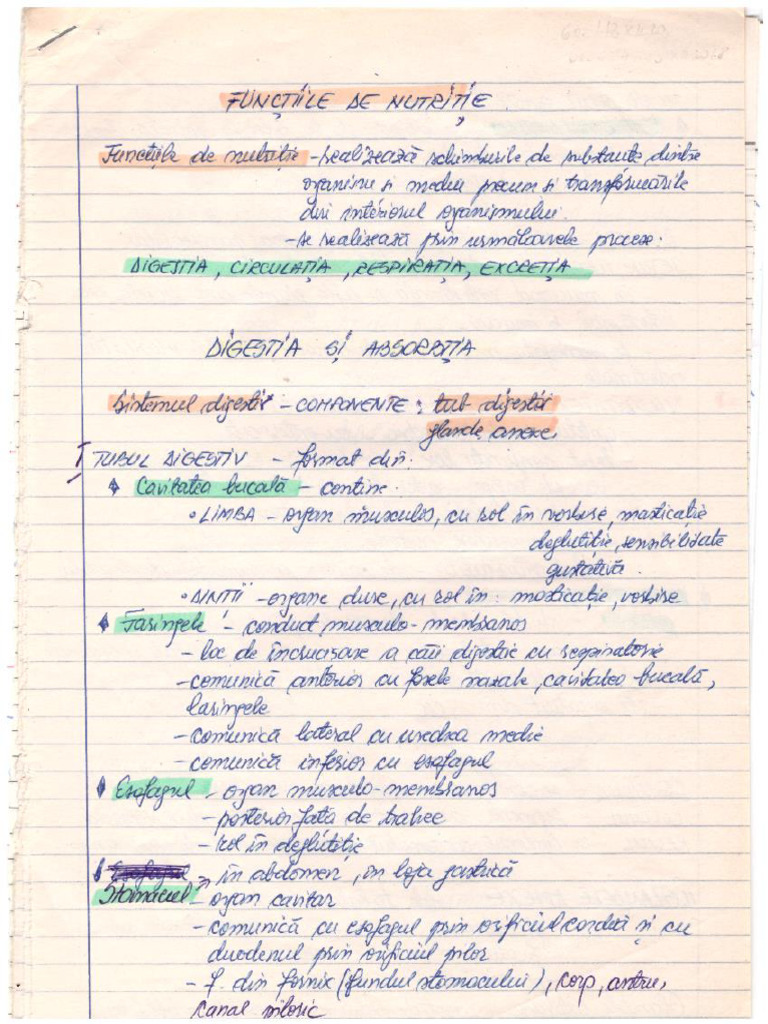 FUNCȚIILE DE NUTRIȚIE
Funcțiile de nutriție - realizează schimburile de substanțe dintre
organism și mediu precum și transformările
din interiorul organismului.
- se realizează prin următoarele procese:
DIGESTIA, CIRCULAȚIA, RESPIRAȚIA, EXCREȚIA
DIGESTIA ȘI ABSORBȚIA
Sistemul digestiv - COMPONENTE: tub digestiv
glande anexe.
I TUBUL DIGESTIV - format din:
Cavitatea bucală - conține:
• LIMBA - organ musculos, cu rol în vorbire, masticație
deglutiție, sensibilitate
gustativă.
• DINȚII - organe dure, cu rol în: masticație, vorbire
Faringele - conduct musculo-membranos
- loc de încrucișare a căii digestive cu respiratorie
- comunică anterior cu fosele nazale, cavitatea bucală,
laringele
- comunică lateral cu urechea medie
- comunică inferior cu esofagul
Esofagul - organ musculo-membranos
- posterior față de trahee
- rol în deglutiție
Stomacul - în abdomen, în loja gastrică
- organ cavitar
- comunică cu esofagul prin orificiul cardia și cu
duodenul prin orificiul pilor
- f. din fornix (fundul stomacului), corp, antru,
canal piloric